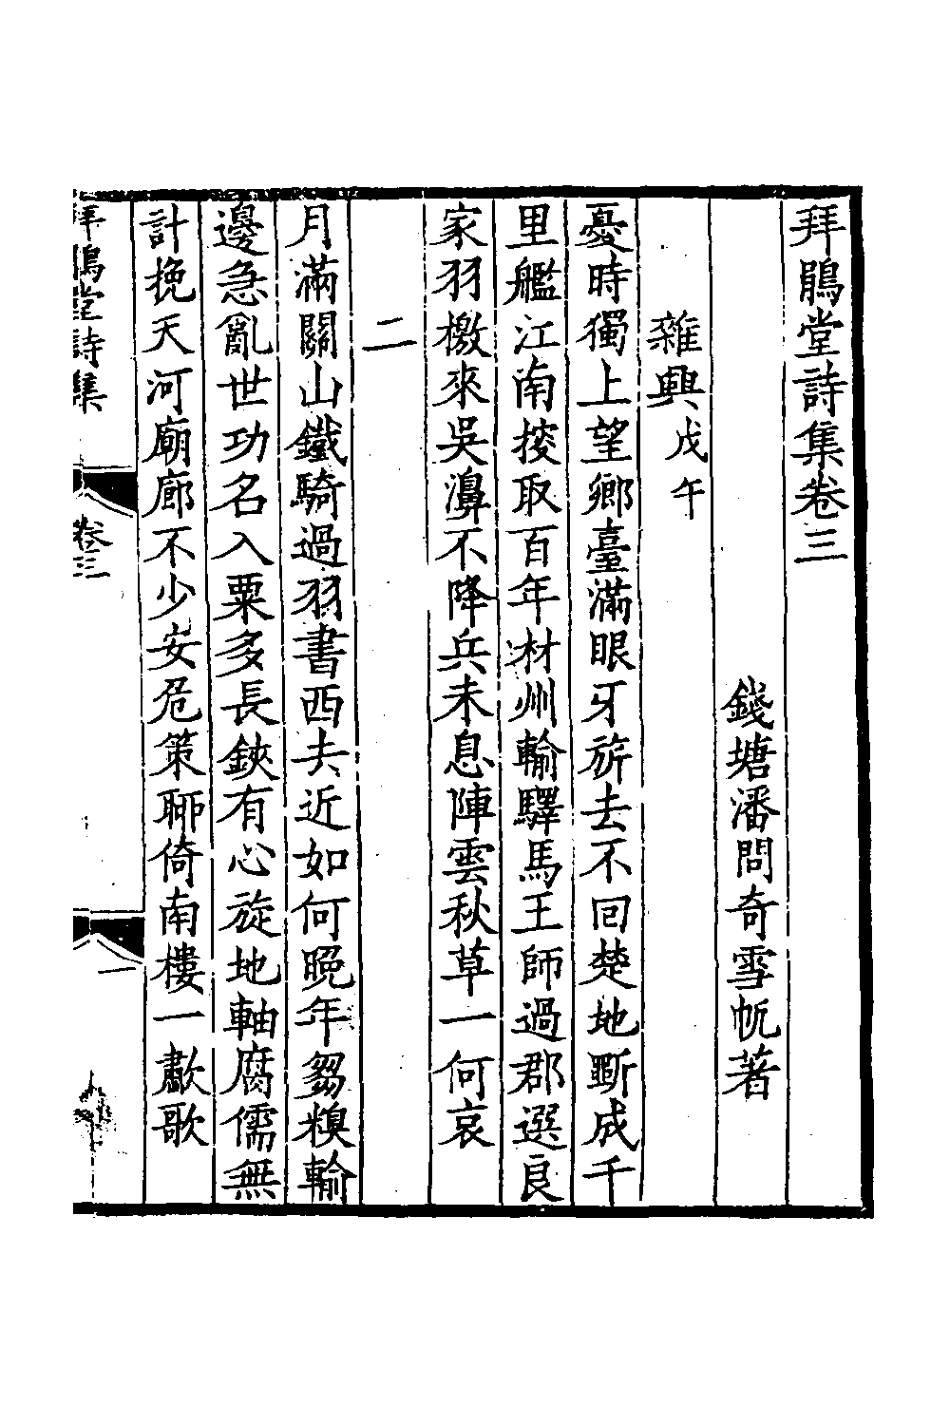 拜鵑堂詩集卷三
錢塘潘問奇雪帆著
雜興戊午
憂時獨上望鄉臺滿眼牙旂去不回楚地斷成千
里艦江南搜取百年材州輸驛馬王師過郡選良
家羽檄來吳濞不降兵未息陣雲秋草一何哀
二
月滿關山鐵騎過羽書西去近如何晚年芻糗輸
邊急亂世功名入粟多長鋏有心旋地軸腐儒無
計挽天河廟廊不少安危策聊倚南樓一歗歌
拜鵑堂詩集
卷三
一